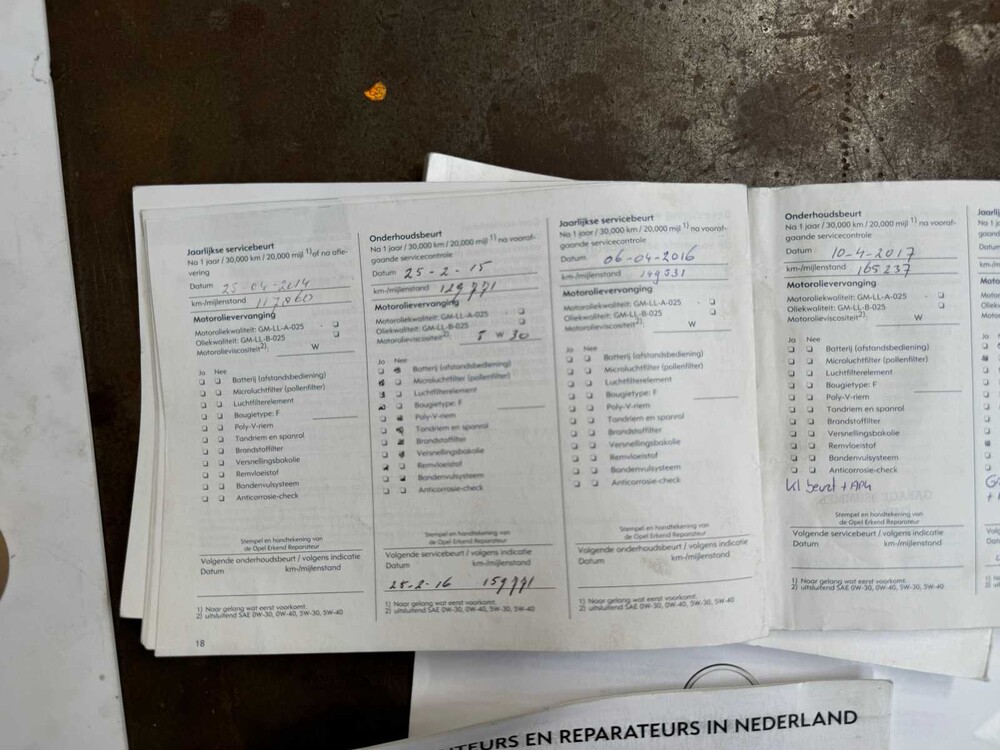 Jaarlijkse servicebeurt
Na 1 jaar / 30,000 km / 20,000 mijl 1) of na afle-
vering
Datum 25-04-2014
km-/mijlenstand 117860
Motorolievervanging
Motoroliekwaliteit: GM-LL-A-025
Oliekwaliteit: GM-LL-B-025
Motorolieviscositeit2): W
Ja Nee
Batterij (afstandsbediening)
Microluchtfilter (pollenfilter)
Luchtfilterelement
Bougietype: F
Poly-V-riem
Tandriem en spanrol
Brandstoffilter
Versnellingsbakolie
Remvloeistof
Bandenvulsysteem
Anticorrosie-check
Stempel en handtekening van
de Opel Erkend Reparateur
Volgende servicebeurt / volgens indicatie
Datum km-/mijlenstand
1) Naar gelang wat eerst voorkomt.
2) uitsluitend SAE 0W-30, 0W-40, 5W-30, 5W-40
18
Onderhoudsbeurt
Na 1 jaar / 30,000 km / 20,000 mijl 1) na vooraf-
gaande servicecontrole
Datum 25-2-15
km-/mijlenstand 129771
Motorolievervanging
Motoroliekwaliteit: GM-LL-A-025
Oliekwaliteit: GM-LL-B-025
Motorolieviscositeit2): 5 W 30
Ja Nee
Batterij (afstandsbediening)
Microluchtfilter (pollenfilter)
Luchtfilterelement
Bougietype: F
Poly-V-riem
Tandriem en spanrol
Brandstoffilter
Versnellingsbakolie
Remvloeistof
Bandenvulsysteem
Anticorrosie-check
Stempel en handtekening van
de Opel Erkend Reparateur
Volgende servicebeurt / volgens indicatie
Datum km-/mijlenstand
25-2-16 159771
1) Naar gelang wat eerst voorkomt.
2) uitsluitend SAE 0W-30, 0W-40, 5W-30, 5W-40
Jaarlijkse servicebeurt
Na 1 jaar / 30,000 km / 20,000 mijl 1) na vooraf-
gaande servicecontrole
Datum 06-04-2016
km-/mijlenstand 149531
Motorolievervanging
Motoroliekwaliteit: GM-LL-A-025
Oliekwaliteit: GM-LL-B-025
Motorolieviscositeit2): W
Ja Nee
Batterij (afstandsbediening)
Microluchtfilter (pollenfilter)
Luchtfilterelement
Bougietype: F
Poly-V-riem
Tandriem en spanrol
Brandstoffilter
Versnellingsbakolie
Remvloeistof
Bandenvulsysteem
Anticorrosie-check
Stempel en handtekening van
de Opel Erkend Reparateur
Volgende onderhoudsbeurt / volgens indicatie
Datum km-/mijlenstand
1) Naar gelang wat eerst voorkomt.
2) uitsluitend SAE 0W-30, 0W-40, 5W-30, 5W-40
Onderhoudsbeurt
Na 1 jaar / 30,000 km / 20,000 mijl 1) na vooraf-
gaande servicecontrole
Datum 10-4-2017
km-/mijlenstand 165237
Motorolievervanging
Motoroliekwaliteit: GM-LL-A-025
Oliekwaliteit: GM-LL-B-025
Motorolieviscositeit2): W
Ja Nee
Batterij (afstandsbediening)
Microluchtfilter (pollenfilter)
Luchtfilterelement
Bougietype: F
Poly-V-riem
Tandriem en spanrol
Brandstoffilter
Versnellingsbakolie
Remvloeistof
Bandenvulsysteem
Anticorrosie-check
kl beurt + APK
Stempel en handtekening van
de Opel Erkend Reparateur
Volgende servicebeurt / volgens indicatie
Datum km-/mijlenstand
1) Naar gelang wat eerst voorkomt.
2) uitsluitend SAE 0W-30, 0W-40, 5W-30, 5W-40
TEURS EN REPARATEURS IN NEDERLAND